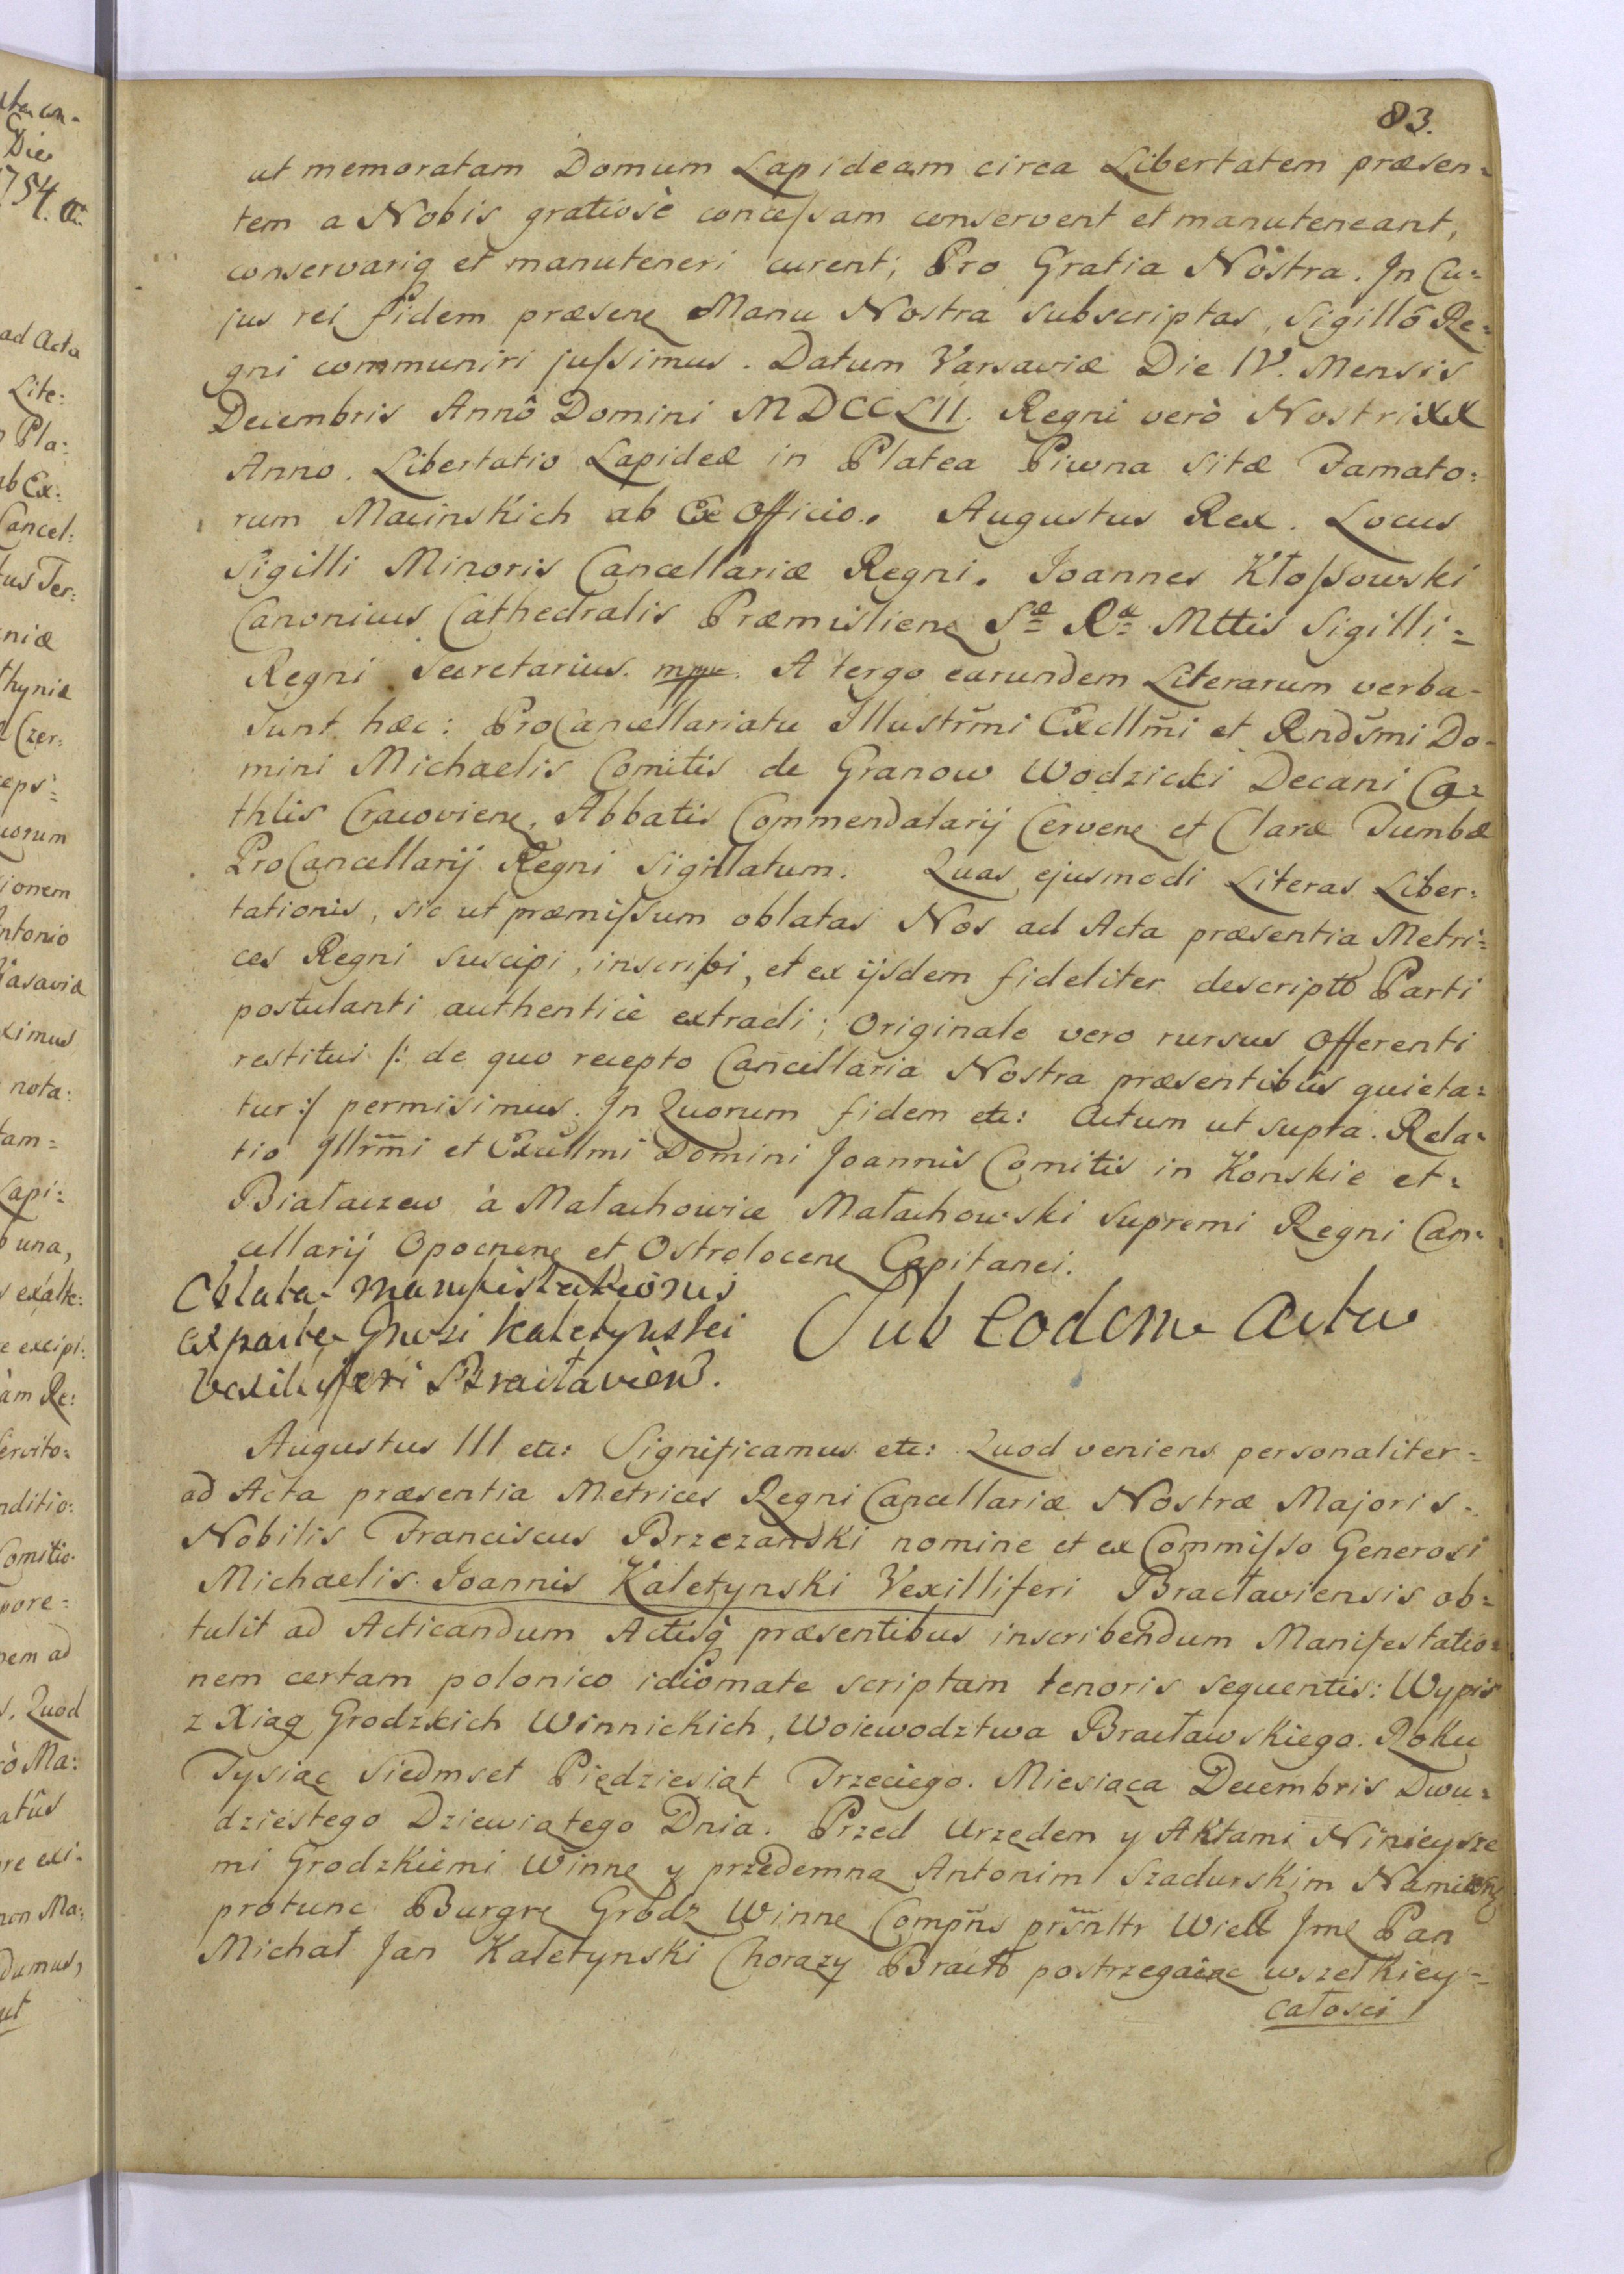 83.
ut memoratam Domum Lapideam circa Libertatem præsen=
tem a Nobis gratiosè concessam conservent et manuteneant,
conservariq et manuteneri curent; Pro Gratia Nostra. In Cu=
jus rei fidem præsene Manu Nostra subscriptas, Sigillô Re=
gni communiri jussimus. Datum Varsaviæ Die IV. Mensis
Decembris Annô Domini MDCCLII. Regni verò Nostri XX
Anno. Libertatio Lapideæ in Platea Piwna sitæ Famato=
rum Macinskich ab Ex Officio. Augustus Rex. Locus
Sigilli Minoris Cancellariæ Regni. Joannes Kłossowski
Canonicus Cathedralis Præmisliene Sæ Ræ Mttis Sigilli=
Regni Secretarius. mppr. A tergo earundem Literarum verba-
sunt hæc: ProCancellariatu Illustrm̃i Excllm̃i et Rndsm̃i Do-
mini Michaelis Comitis de Granow Wodzicki Decani Ca=
thlis Cracoviene, Abbatis Commendatarij Cervene et Claræ Tumbæ
ProCancellarij Regni Sigillatum. Quas ejusmodi Literas Liber=
tationis, sic ut præmissum oblatas Nos ad Acta præsentia Metri=
ces Regni suscipi, inscribi, et ex ijsdem fideliter descripto Parti
postulanti authenticè extradi; Originale vero rursus Offerenti
restitui /: de quo recepto Cancellaria Nostra præsentibus quieta=
tur :/ permisimus. In Quorum fidem etc: Actum ut supra. Rela=
tio Illrm̃i et Excellmi Domini Joannis Comitis in Konskie et=
Białaczew à Małachowice Małachowski Supremi Regni Can=
cellarij Opocnene et Ostrolocene Capitanei.
Oblata Manifestationis
ex parte Gnosi Kaletynski
Vexilliferi Bracłavien.
Sub eodem Actu
Augustus III etc: Significamus etc: Quod veniens personaliter=
ad Acta præsentia Metrices Regni Cancellariæ Nostræ Majoris=
Nobilis Franciscus Brzezanski nomine et ex Commisso Generosi
Michaelis Joannis Kaletynski Vexilliferi Bracłaviensis ob=
tulit ad Acticandum Actisq̀ præsentibus inscribendum Manifestatio=
nem certam polonico idiomate scriptam tenoris sequentis: Wypis
z Xiąg Grodzkich Winnickich, Woiewodztwa Bracławskiego. Roku
Tysiąc Siedmset Piędziesiąt Trzeciego. Miesiąca Decembris Dwu=
dziestego Dziewiątego Dnia. Przed Urzędem y Aktami Ninieysze
mi Grodzkiemi Winne y przedemną Antonim Szadurskim
protunc Burgre Grodz Winne Comp̃ns prsñltr Wiel Jme Pan
Michał Jan Kaletynski Chorąży Bracł postrzegaiąc wszelkiey=
całosci